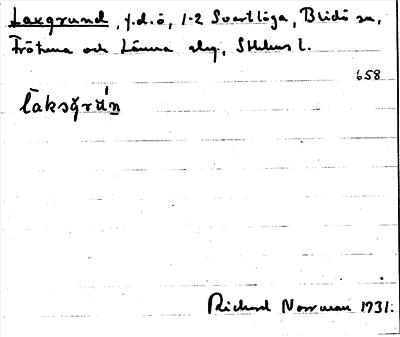 Laxgrund, f.d.ö, 1-2 Svartlöga, Blidö sn,
Frötuna och Länna skg, Sthlms l.
658
Richard Norrman 1931.